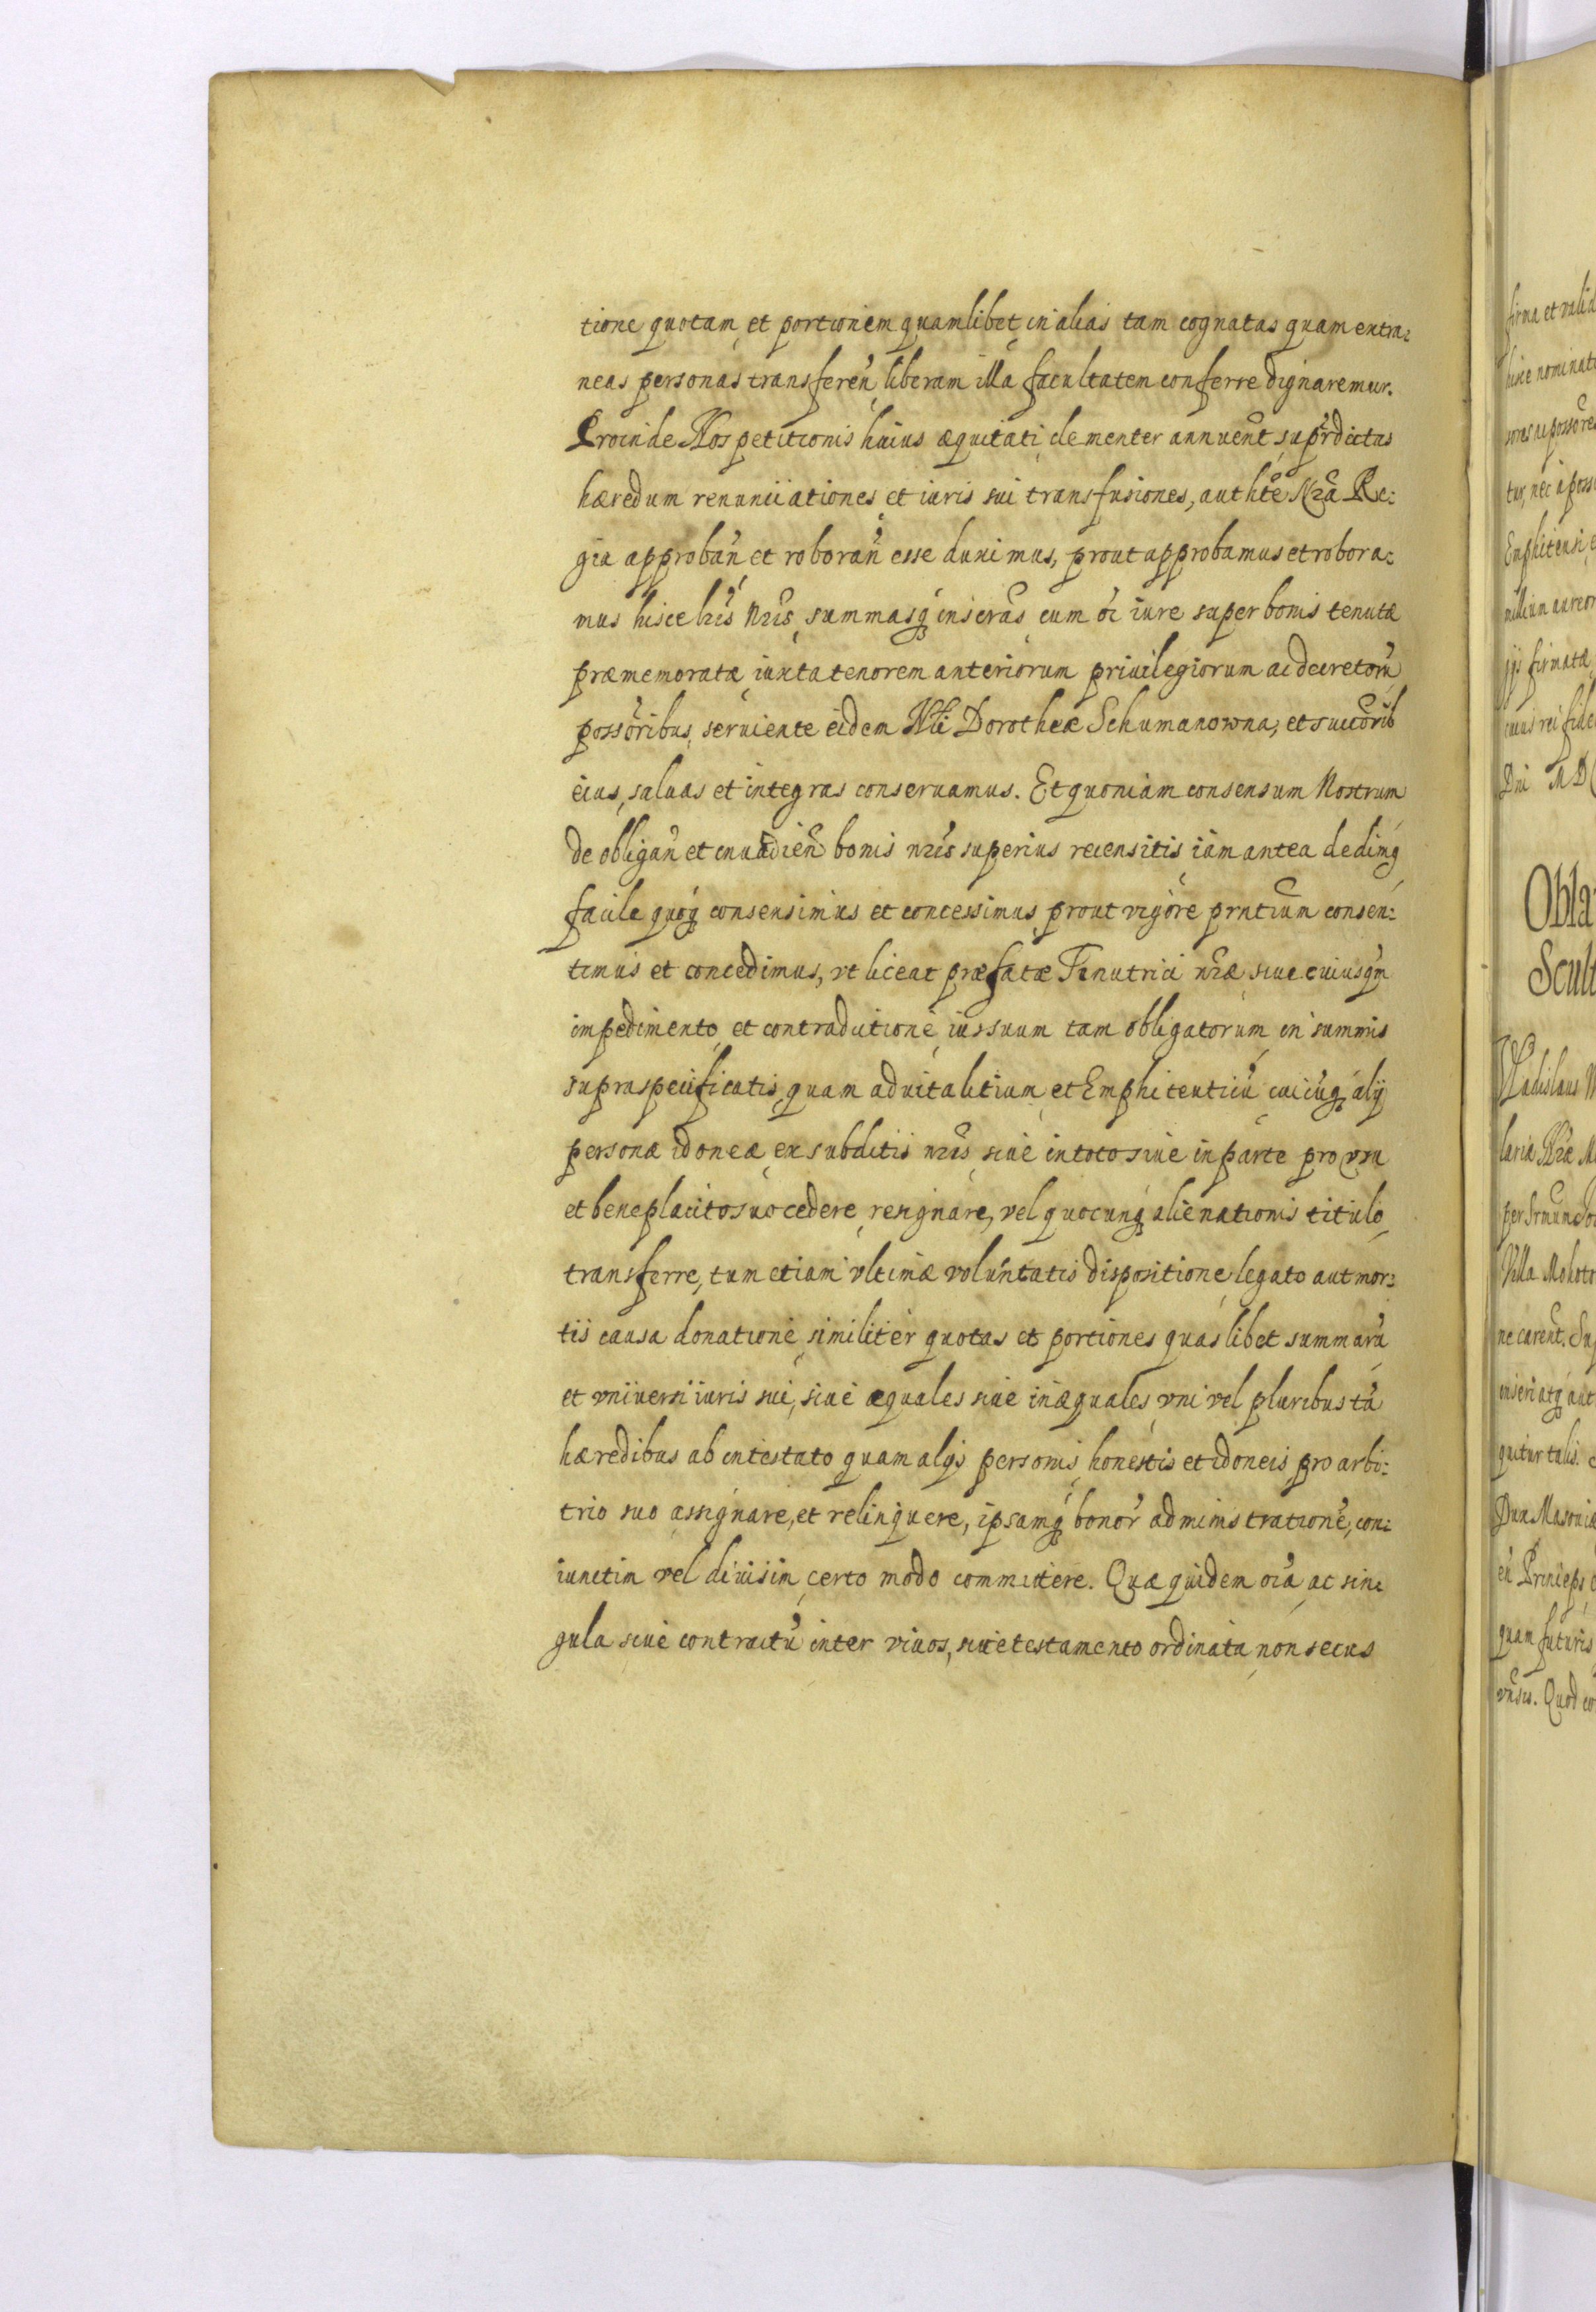 tione quotam et portionem quamlibet in alias tam cognatas quam extra:
neas personas transferen̄ liberam illa facultatem conferre dignaremur.
Proinde Nos petitionis huius æquitati clementer annuent̄ suprdictas
hæredum renunciationes et iuris sui transfusiones, authte Nrā Re:
gia approban̄ et roboran̄ esse duximus, prout approbamus et robora:
mus hisce lris Nris, summasq inscras cum oi iure super bonis tenutæ
præmemoratæ iuxta tenorem anteriorum priuilegiorum ac decretorū
possoribus seruiente eidem Nli Dorotheæ Schumanowna, et succorib
eius, saluas et integras conseruamus. Et quoniam consensum Nostrum
de obligan̄ et inuadien̄ bonis nris superius recensitis iam antea dedimq
facile quoq consensimus et concessimus, prout vigore prntium consen:
timus et concedimus, vt liceat præfatæ Tenutrici nræ siue cuiusqm
impedimento et contradictione ius suum tam obligatorum in summis
supraspecificatis quam aduitalitium et Emphiteuticū cuicūq alij
personæ idoneæ ex subditis nris siue in toto siue in parte pro vsu
et beneplacito suo cedere resignare, vel quocunq alienationis titulo
transferre, tum etiam vltimæ voluntatis dispositione legato aut mor:
tis causa donatione similiter quotas et portiones quaslibet summarū
et vniuersi iuris sui, siue æquales siue inæquales vni vel pluribus tā
hæredibus ab intestato quam alijs personis honestis et idoneis pro arbi:
trio suo assignare, et relinquere, ipsamq bonor̄ administrationē, con:
iunctim vel diuisim certo modo committere. Quæ quidem oīa ac sin:
gula siue contractū inter viuos, siue testamento ordinata non secus
Obla
Scult